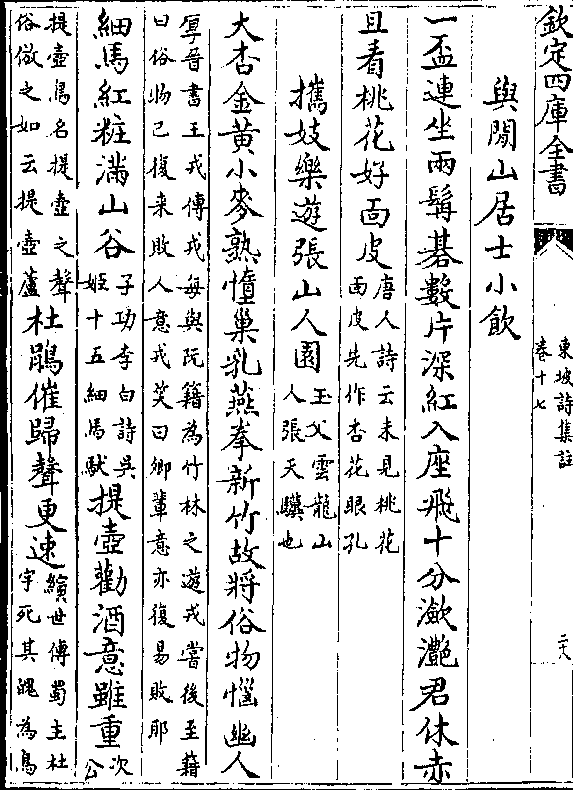 欽定四庫全書
東坡詩集註
卷十七
二八
與閒山居士小飲
一盃連坐兩髯碁數片深紅入座飛十分瀲灧君休赤
且看桃花好面皮
唐人詩云未見桃花
面皮先作杏花眼孔
攜妓樂遊張山人園
玉父雲龍山
人張天驥也
大杏金黃小麥熟憜巢乳燕拳新竹故將俗物惱幽人
厚晉書王戎傳戎每與阮籍為竹林之遊戎嘗後至籍
曰俗物已復来敗人意戎笑曰卿輩意亦復易敗耶
細馬紅粧滿山谷
子功李白詩吳
姬十五細馬馱
提壺勸酒意雖重
次
公
提壺鳥名提壺之聲
俗傚之如云提壺蘆
杜鵑催歸聲更速
縯世傳蜀主杜
宇死其魄為鳥